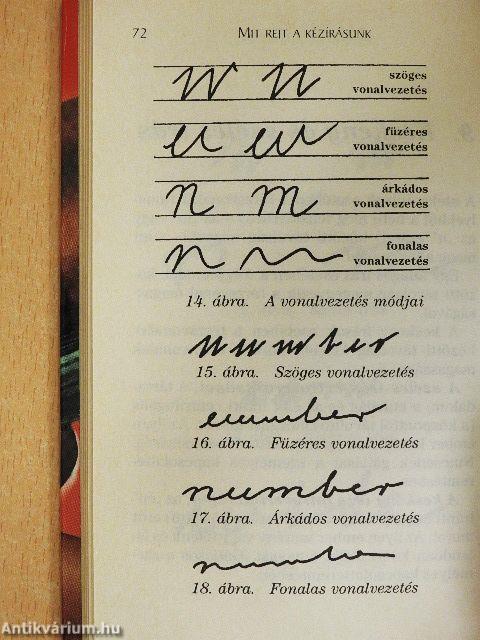 72 MIT REJT A KÉZÍRÁSUNK
szöges
vonalvezetés
füzéres
vonalvezetés
n m árkádos
vonalvezetés
fonalas
vonalvezetés
14. ábra. A vonalvezetés módjai
number
15. ábra. Szöges vonalvezetés
number
16. ábra. Füzéres vonalvezetés
number
17. ábra. Árkádos vonalvezetés
18. ábra. Fonalas vonalvezetés
Antikvárium.hu